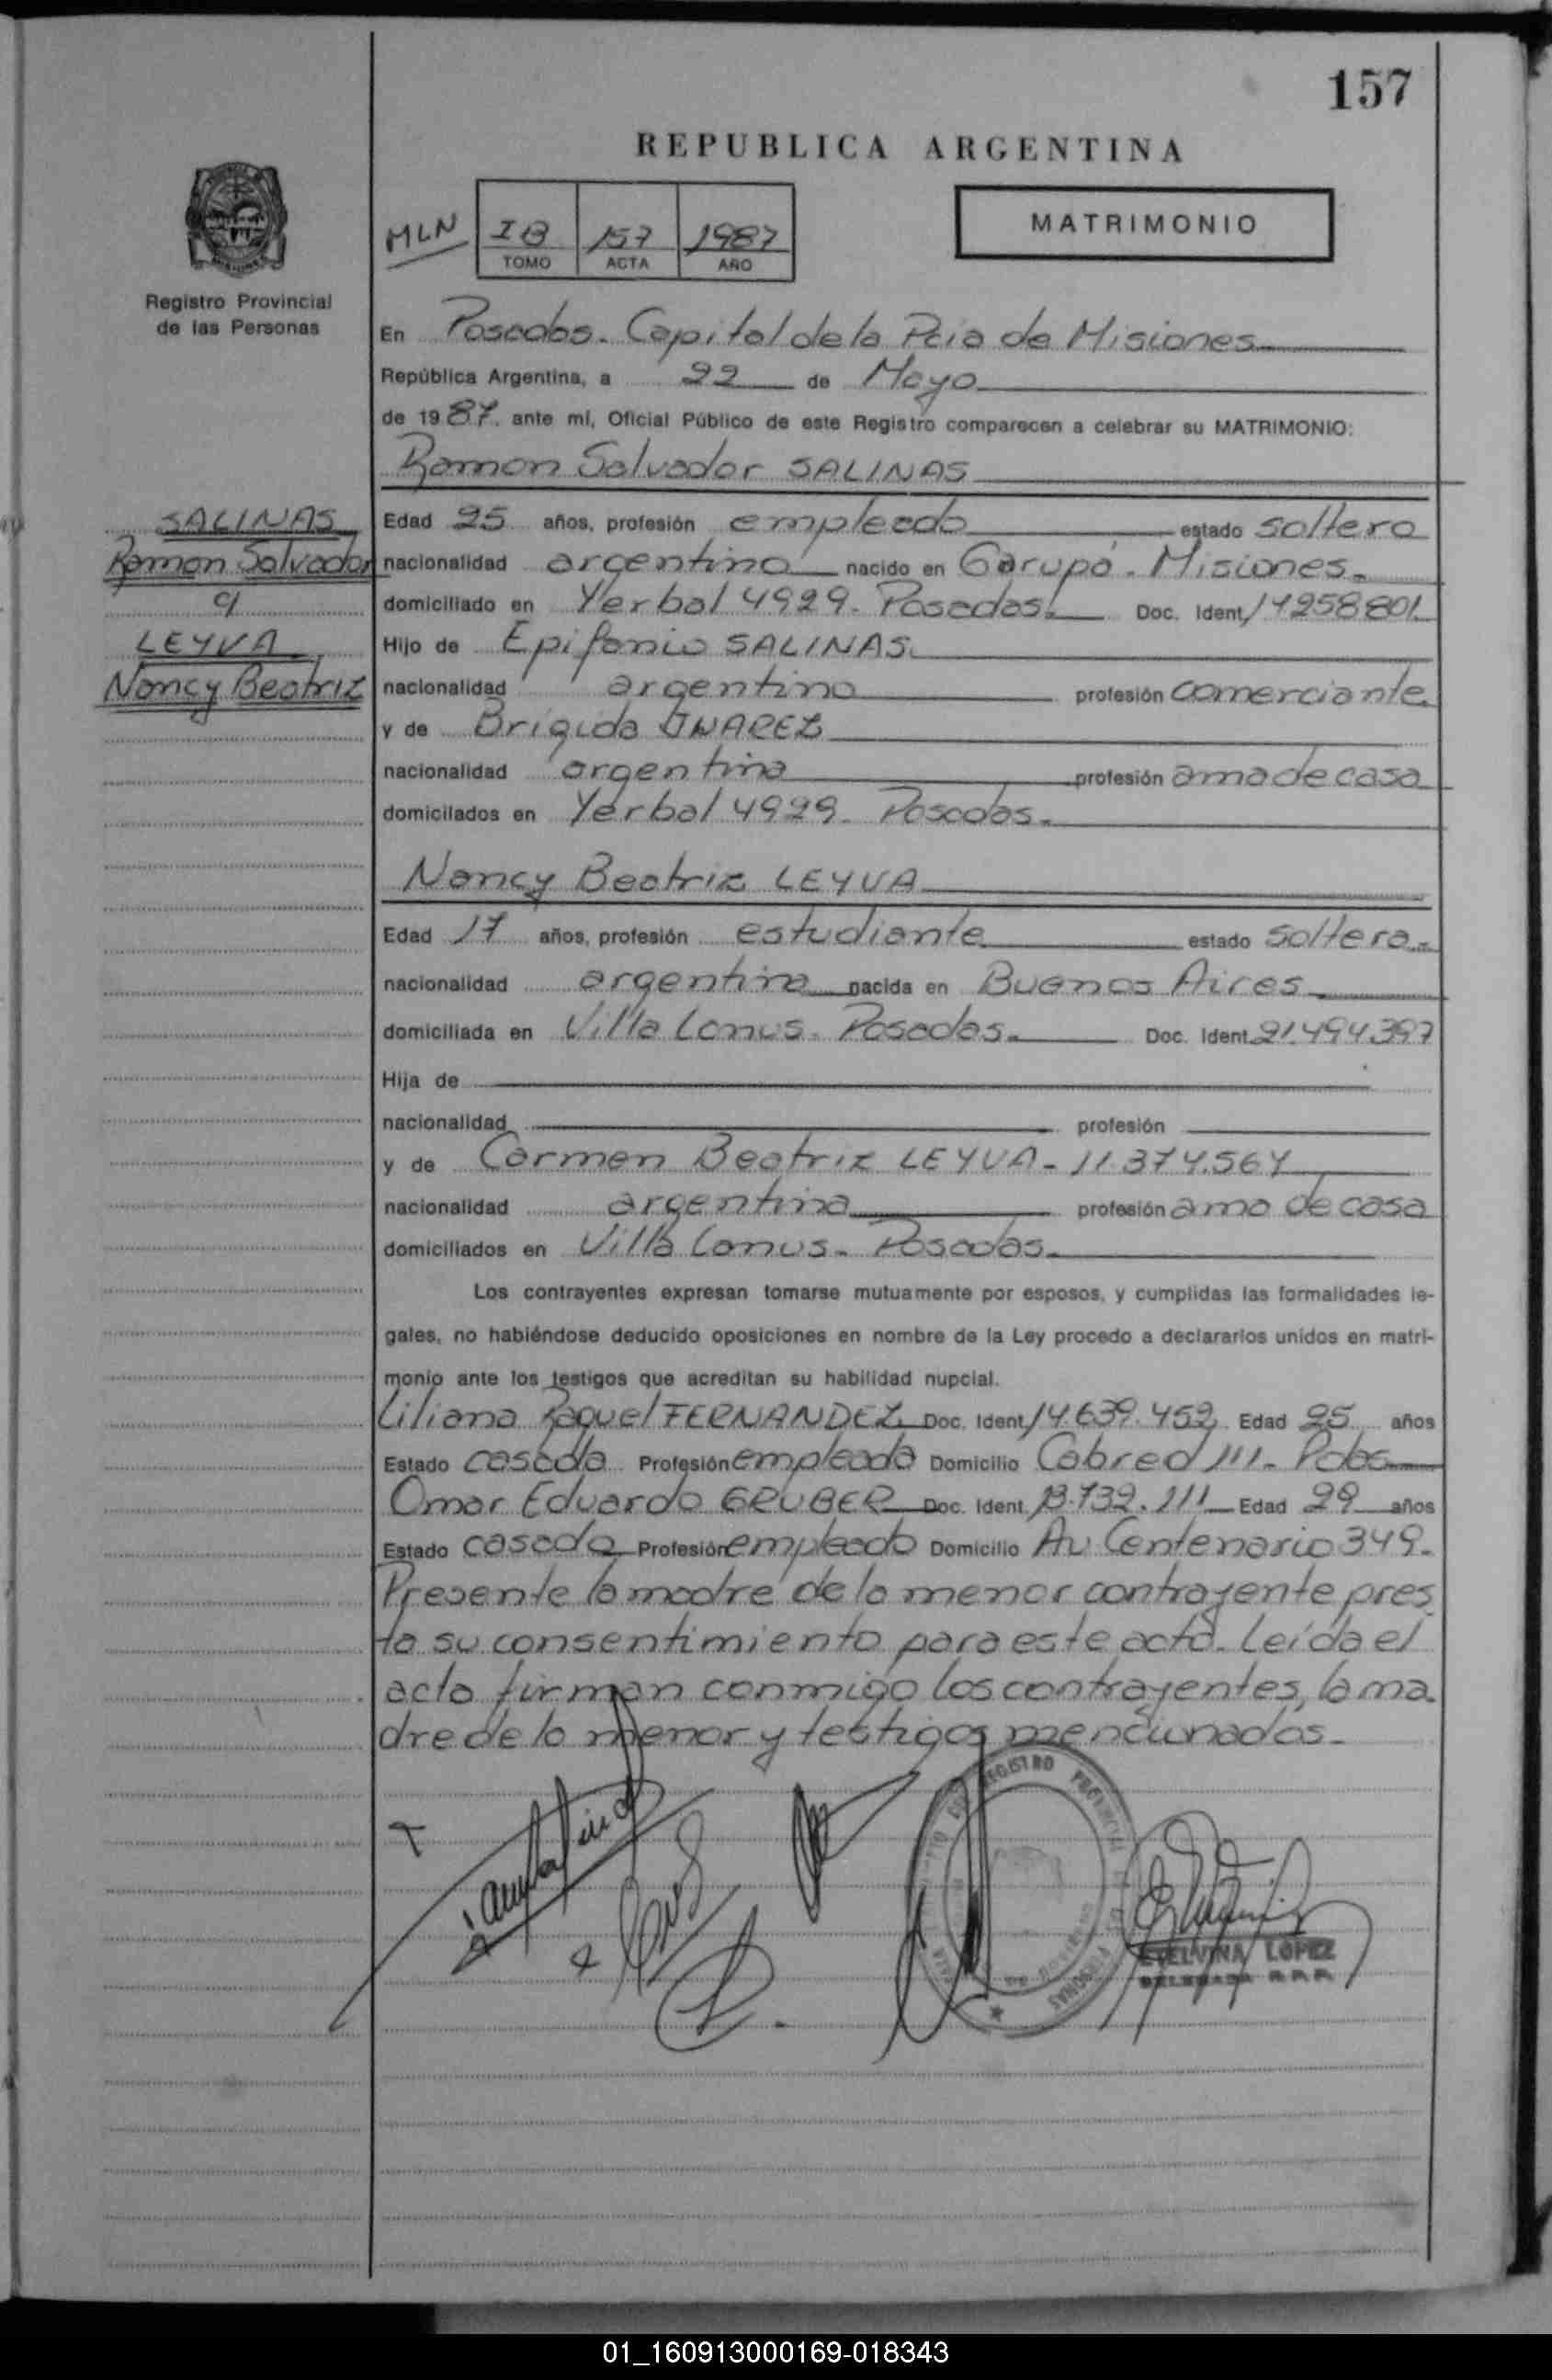 157
REPUBLICA ARGENTINA
MLN
IB 157 1987
TOMO ACTA AÑO
MATRIMONIO
Registro Provincial
de las Personas
En Posadas. Capital de la Pcia de Misiones
República Argentina, a 22 de Mayo
de 1987. ante mí, Oficial Público de este Registro comparecen a celebrar su MATRIMONIO:
Ramon Salvador SALINAS
SALINAS
Ramon Salvador
c/
LEYVA
Nancy Beatriz
Edad 25 años, profesión empleado estado soltero
nacionalidad argentina nacido en Garupá. Misiones.
domiciliado en Yerbal 4929. Posadas. Doc. Ident. 14258801.
Hijo de Epifanio SALINAS.
nacionalidad argentino profesión comerciante.
y de Brígida
nacionalidad argentina profesión ama de casa
domicilados en Yerbal 4929. Posadas.
Nancy Beatriz LEYVA
Edad 17 años, profesión estudiante estado soltera.
nacionalidad argentina nacida en Buenos Aires
domiciliada en Villa Lanus. Posadas. Doc. Ident. 21.494.397
Hija de
nacionalidad profesión
y de Carmen Beatriz LEYVA - 11.374.564
nacionalidad argentina profesión ama de casa
domiciliados en Villa Lanus. Posadas.
Los contrayentes expresan tomarse mutuamente por esposos, y cumplidas las formalidades le-
gales, no habiéndose deducido oposiciones en nombre de la Ley procedo a declararlos unidos en matri-
monio ante los testigos que acreditan su habilidad nupcial.
Liliana Raquel FERNANDEZ Doc. Ident. 14.639.452 Edad 25 años
Estado casada Profesión empleada Domicilio Cabred 111. Pdas
Omar Eduardo GRUBER Doc. Ident. 13.732.111 Edad 29 años
Estado casado Profesión empleado Domicilio Av Centenario 349.
Presente la madre de la menor contrayente pres
ta su consentimiento para este acto. Leída el
acta firman conmigo los contrayentes, la ma.
dre de la menor y testigos mencionados.
ETELVINA LOPEZ
DELEGADA R.P.P.
01_160913000169-018343